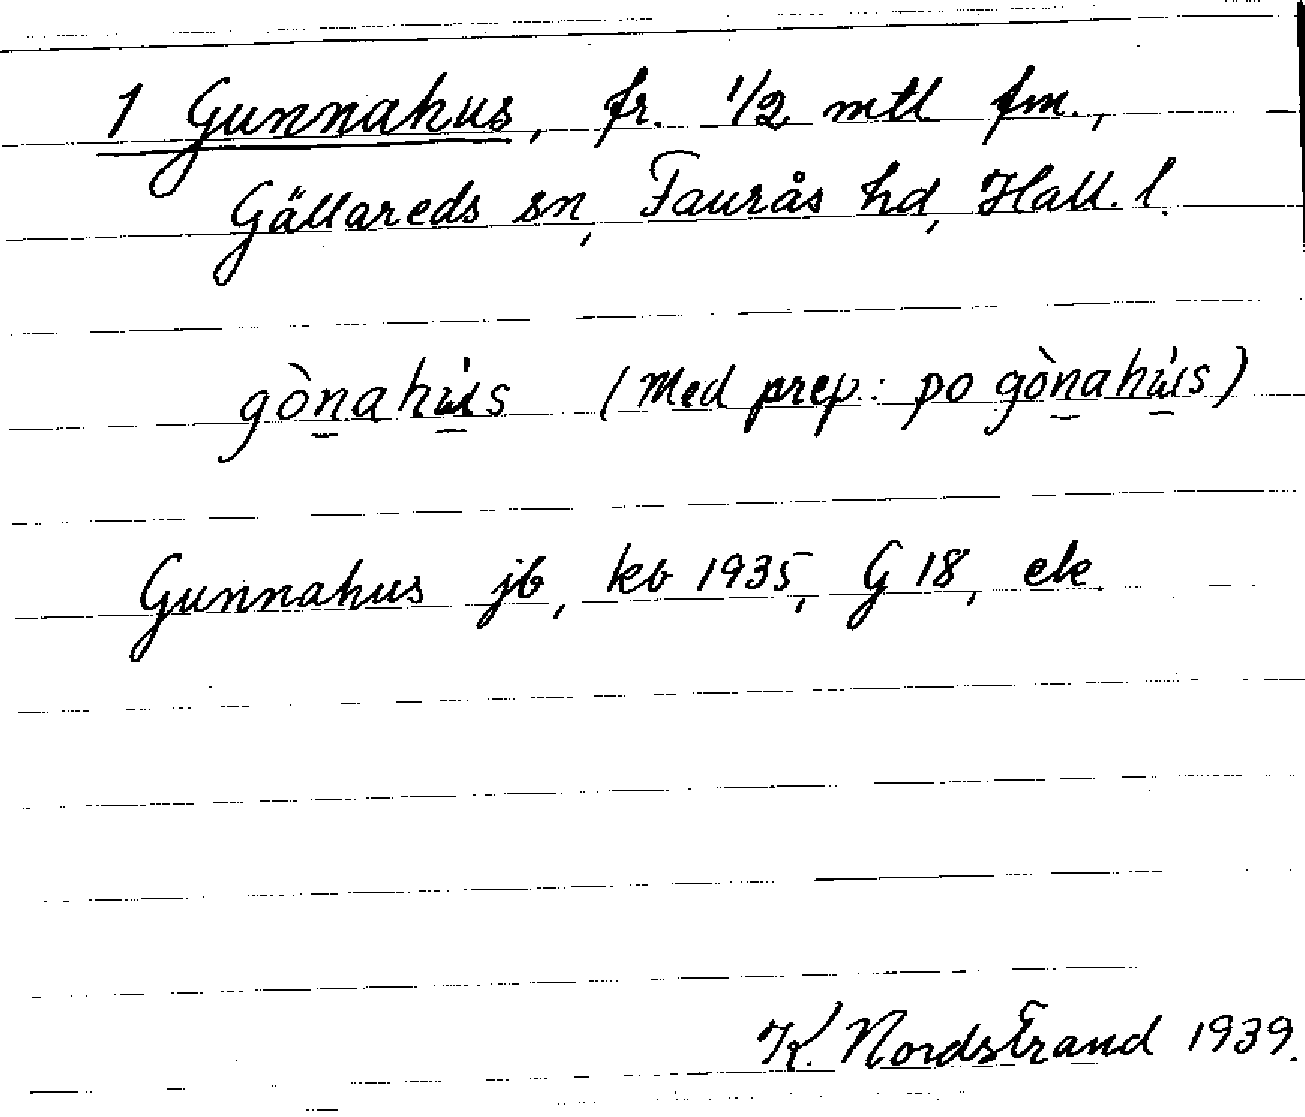 1 Gunnahus, fr. 1/2 mtl fm.,
Gällareds sn, Faurås hd, Hall. l.
gòn̠ahu̠̍s (Med prep: po gòn̠ahu̠̍s)
Gunnahus jb, kb 1935, G 18, ek.
K. Nordstrand 1939.